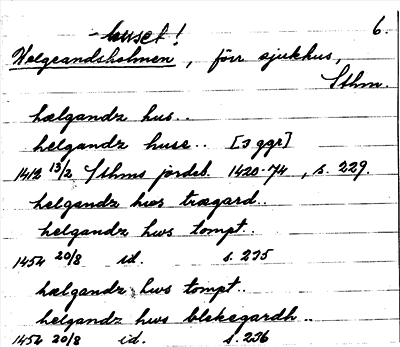 -huset! 6.
Helgeandsholmen, förr sjukhus,
Sthm.
hælgandz hus..
helgandz huse.. [3 ggr]
1412 13/2 Sthms jordeb. 1420-74, s. 229.
helgandz hws trægard..
helgandz hws tompt..
1454 20/8 id. s. 235
hælgandz hws tompt..
helgandz hws blekegardh..
1454 20/8 id. s. 236